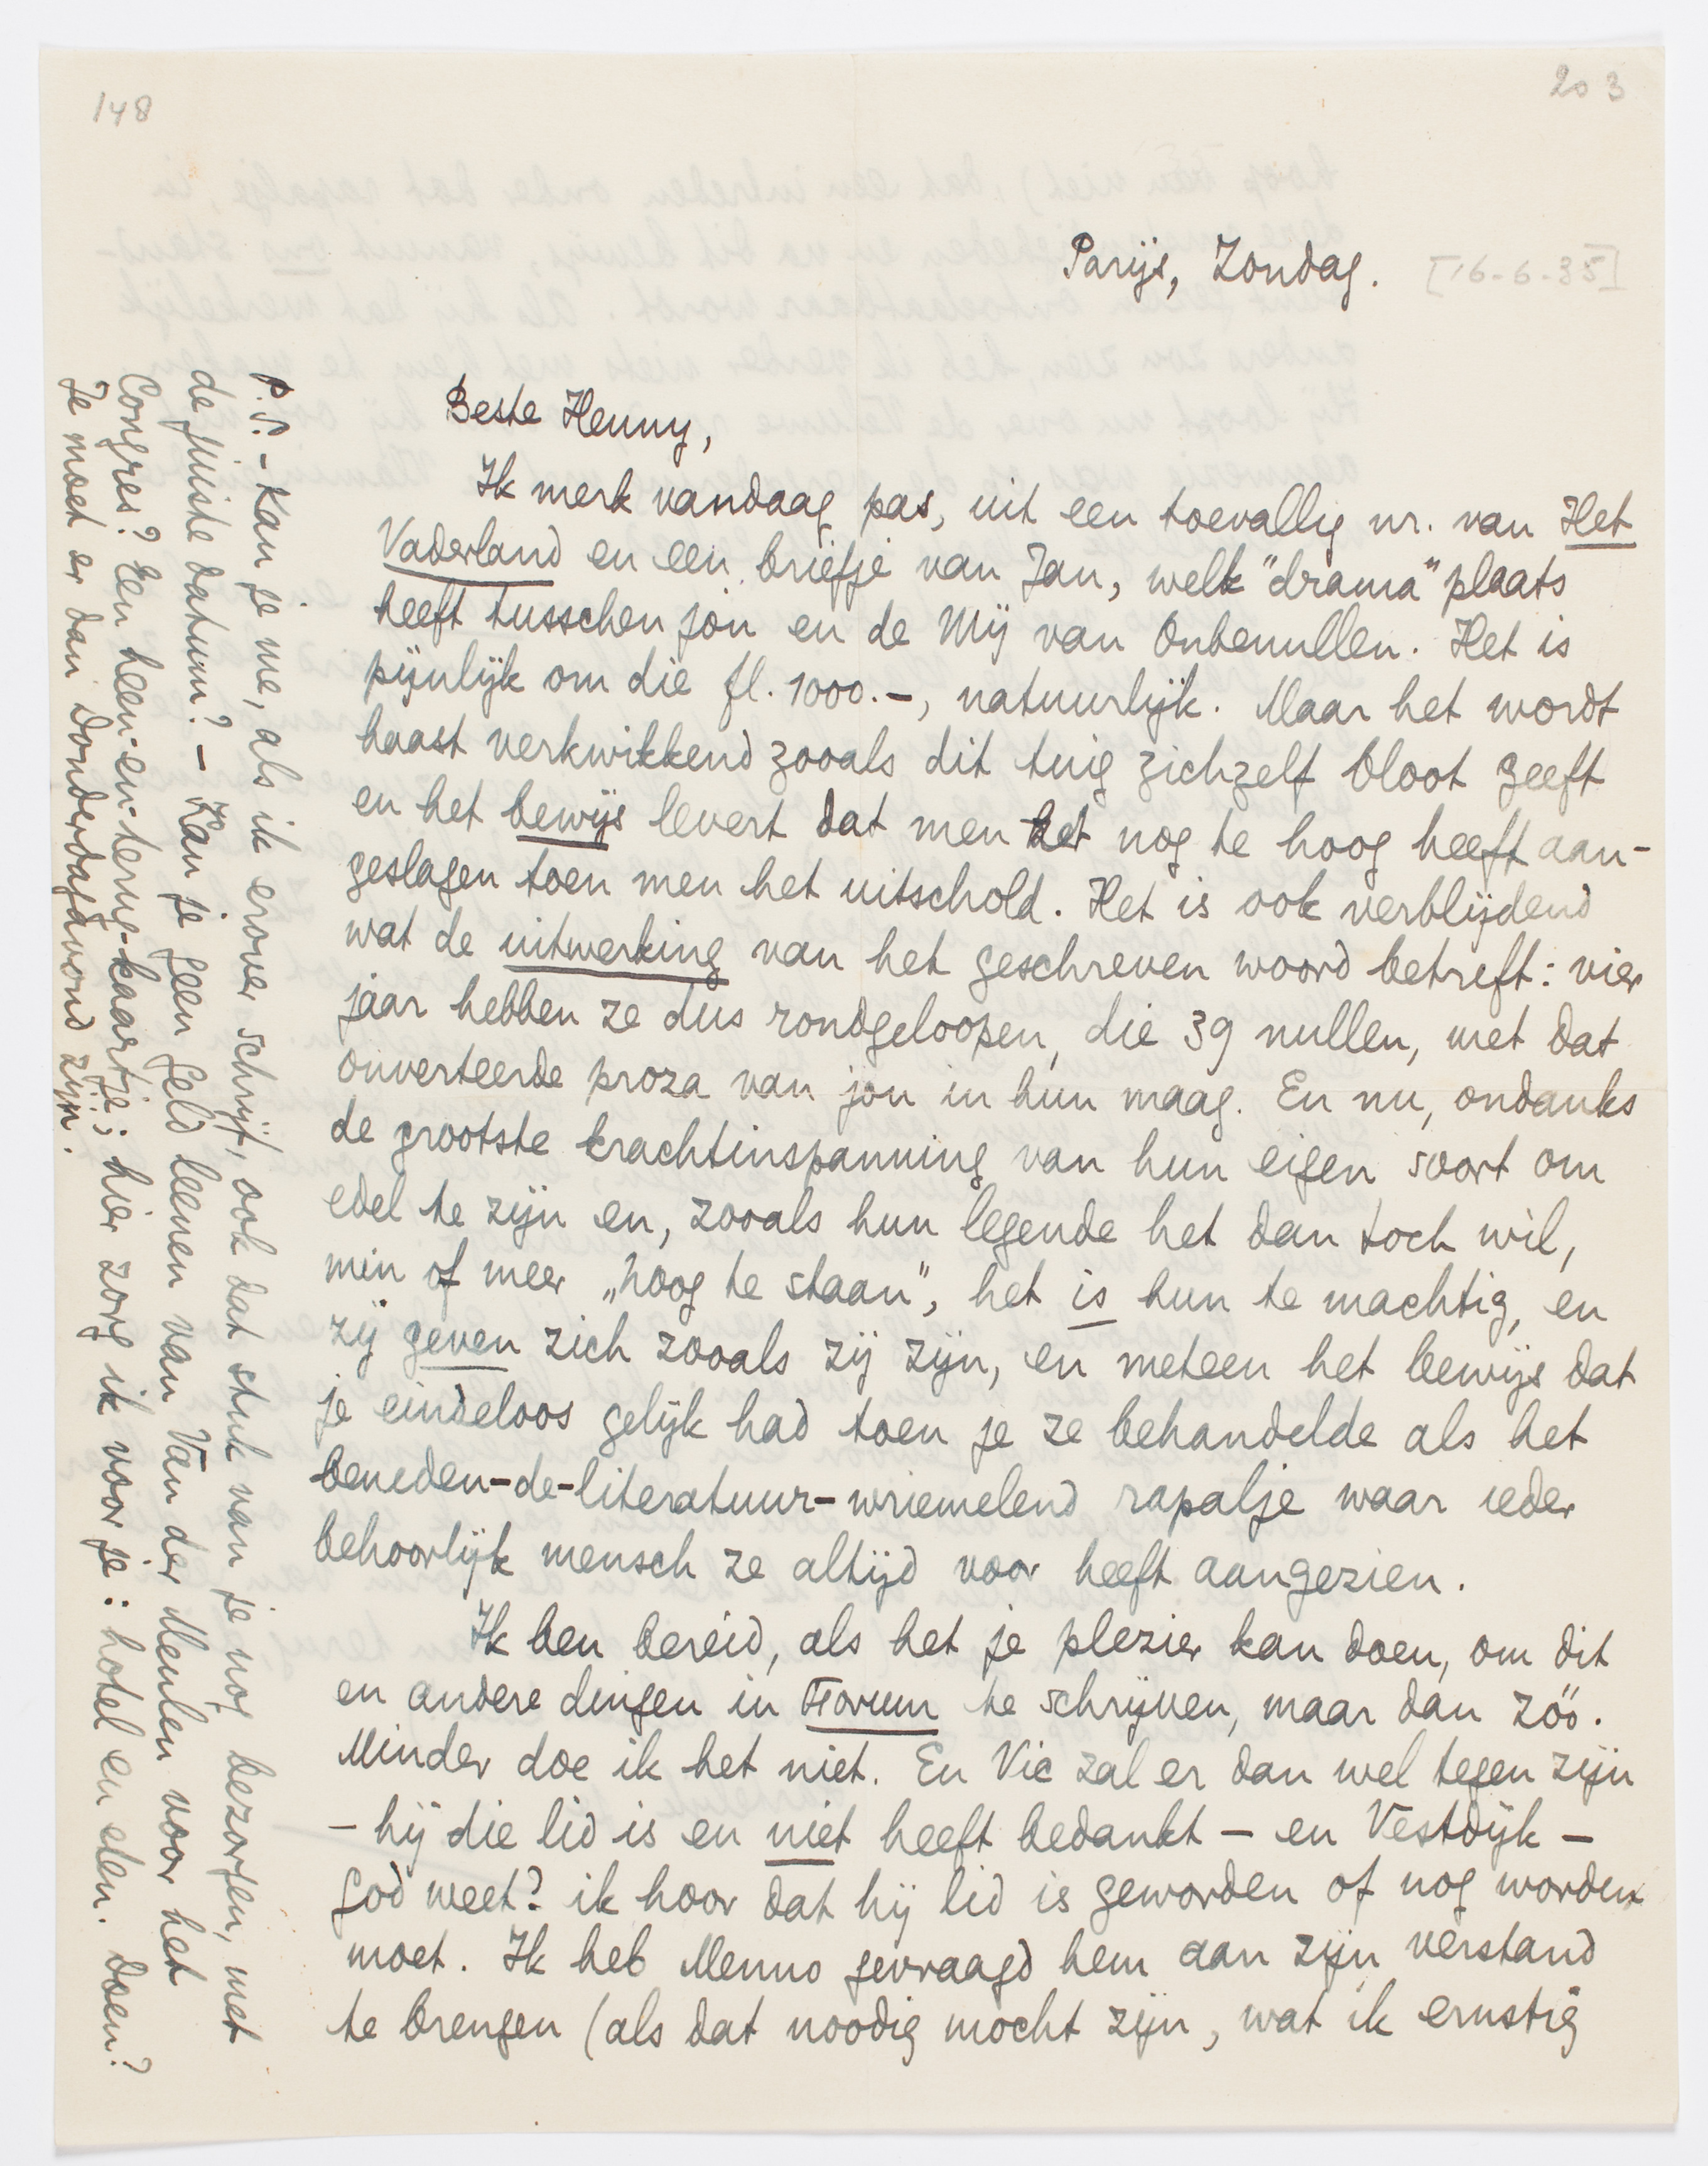 148
203
Parijs, Zondag. [16-6-35]
Beste Henny,
Ik merk vandaag pas, uit een toevallig nr. van Het
Vaderland en een briefje van Jan, welk "drama" plaats
heeft tusschen jou en de Mij van Onbenullen. Het is
pijnlijk om die fl. 1000.-, natuurlijk. Maar het wordt
haast verkwikkend zooals dit tuig zichzelf bloot geeft
en het bewijs levert dat men het nog te hoog heeft aan-
geslagen toen men het uitschold. Het is ook verblijdend
wat de uitwerking van het geschreven woord betreft: vier
jaar hebben ze dus rondgeloopen, die 39 nullen, met dat
onverteerde proza van jou in hun maag. En nu, ondanks
de grootste krachtinspanning van hun eigen soort om
edel te zijn en, zooals hun legende het dan toch wil,
min of meer „hoog te staan", het is hun te machtig, en
zij geven zich zooals zij zijn, en meteen het bewijs dat
je eindeloos gelijk had toen je ze behandelde als het
beneden-de-literatuur-wriemelend rapalje waar ieder
behoorlijk mensch ze altijd voor heeft aangezien.
Ik ben bereid, als het je plezier kan doen, om dit
en andere dingen in Forum te schrijven, maar dan zóó.
Minder doe ik het niet. En Vic zal er dan wel tegen zijn
- hij die lid is en niet heeft bedankt - en Vestdijk -
god weet? ik hoor dat hij lid is geworden of nog worden
moet. Ik heb Menno gevraagd hem aan zijn verstand
te brengen (als dat noodig mocht zijn, wat ik ernstig
P.S. - Kan je me, als ik erover schrijf, ook dat stuk van je nog bezorgen, met
de juiste datum? - Kan je geen geld leenen van Van der Meulen voor het
Congres? Een heen-en-terug-kaartje; hier zorg ik voor je: hotel en eten. Doen?
Je moet er dan Donderdagavond zijn.